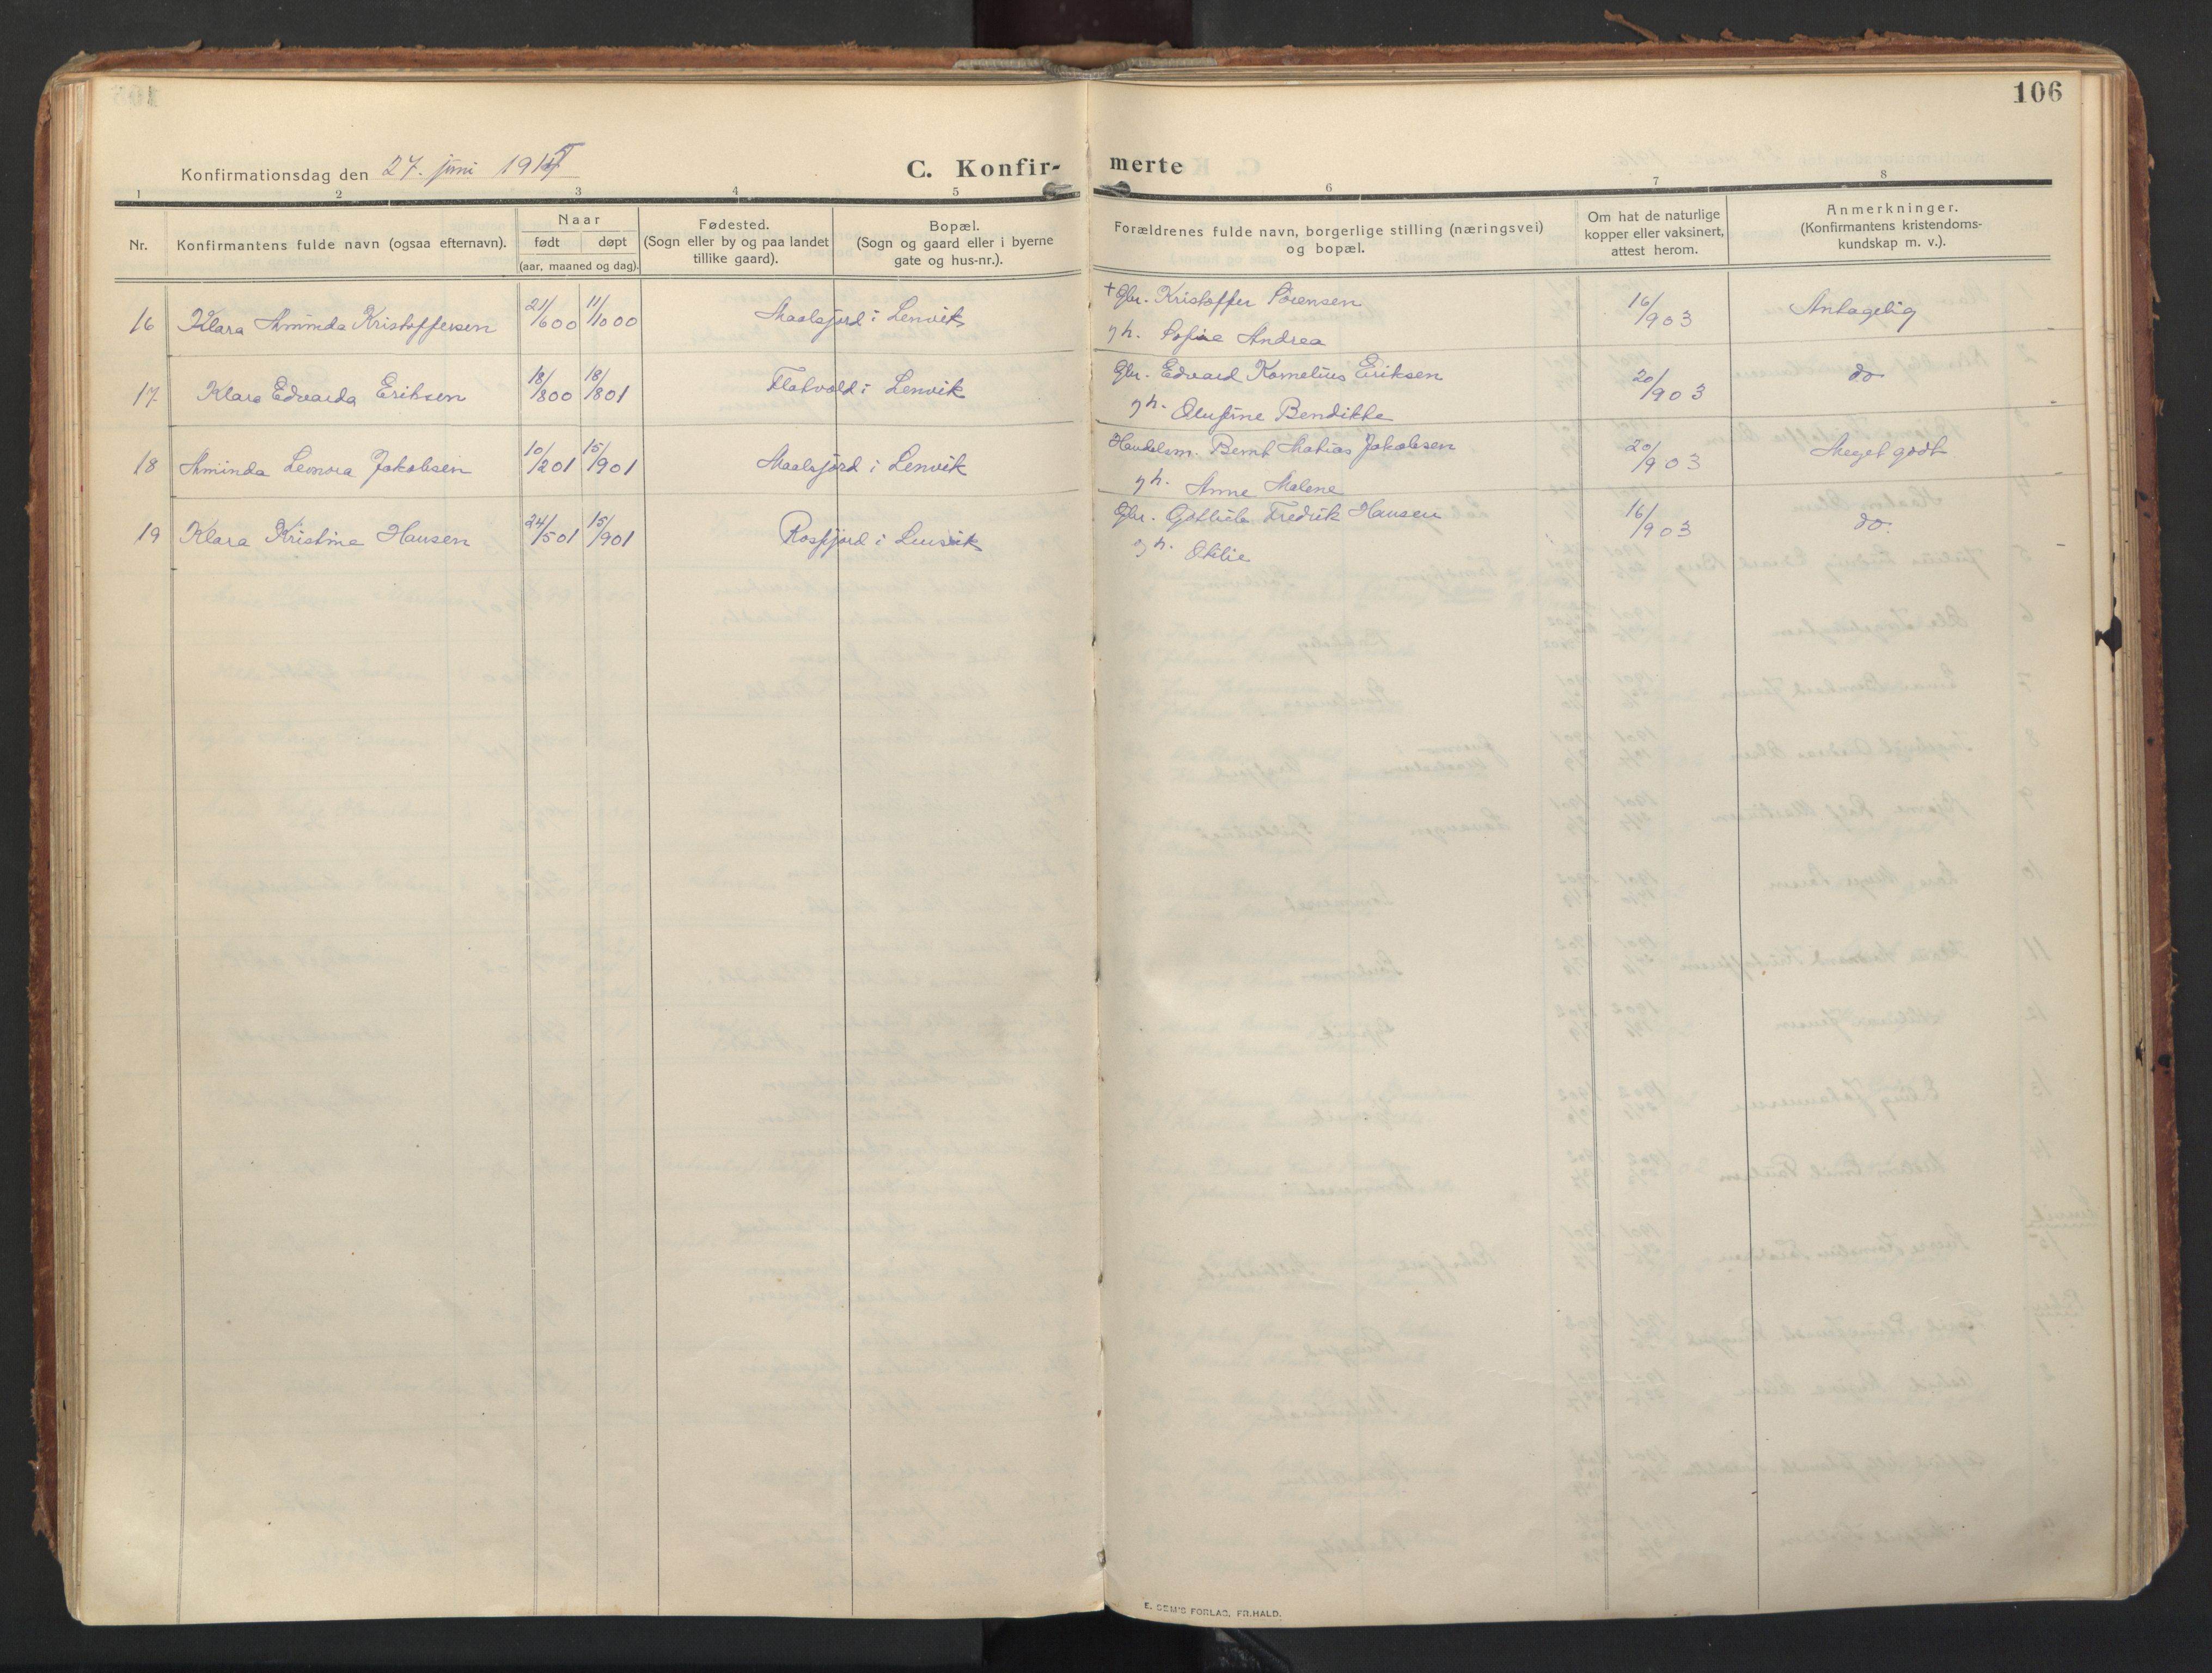 106
Konfirmationsdag den 27. juni 1915
C. Konfirmerte
1 2 3 4 5 6 7 8
Nr.
Konfirmantens fulde navn (ogsaa efternavn).
Naar
født døpt
(aar, maaned og dag).
Fødested.
(Sogn eller by og paa landet
tillike gaard).
Bopæl.
(Sogn og gaard eller i byerne
gate og hus-nr.).
Forældrenes fulde navn, borgerlige stilling (næringsvei)
og bopæl.
Om hat de naturlige
kopper eller vaksinert,
attest herom.
Anmerkninger.
(Konfirmantens kristendoms-
kundskap m. v.).
16 Klara Aminda Kristoffersen 21/600 11/1000 Maalsjord i Lenvik + Gbr. Kristoffer Sørensen 16/903 Antagelig
gh. Sofie Andrea
17 Klara Edvarda Eriksen 18/800 18/801 Flatvold i Lenvik Gbr. Edvard Kornelius Eriksen 20/903 do
gh. Olufine Bendikke
18 Aminda Leonora Jakobsen 10/201 15/901 Maalsjord i Lenvik Handelsm. Bernt Mathias Jakobsen 20/903 Meget godt
gh. Anne Malene
19 Klara Kristine Hansen 24/501 15/901 Rosfjord i Lenvik Gbr. Gottlieb Fredrik Hansen 16/903 do.
gh. Otilie
E. SEM'S FORLAG, FR.HALD.